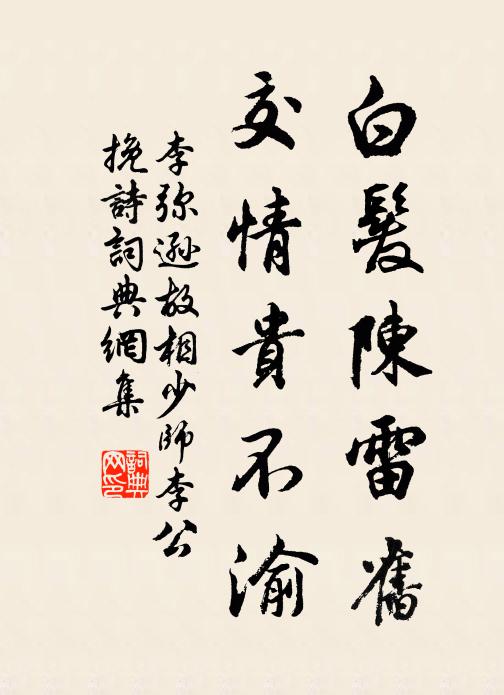 白髮陳雷舊
交情貴不渝
李弥遜故相少師李公
挽詩詞典網集
詞典网印